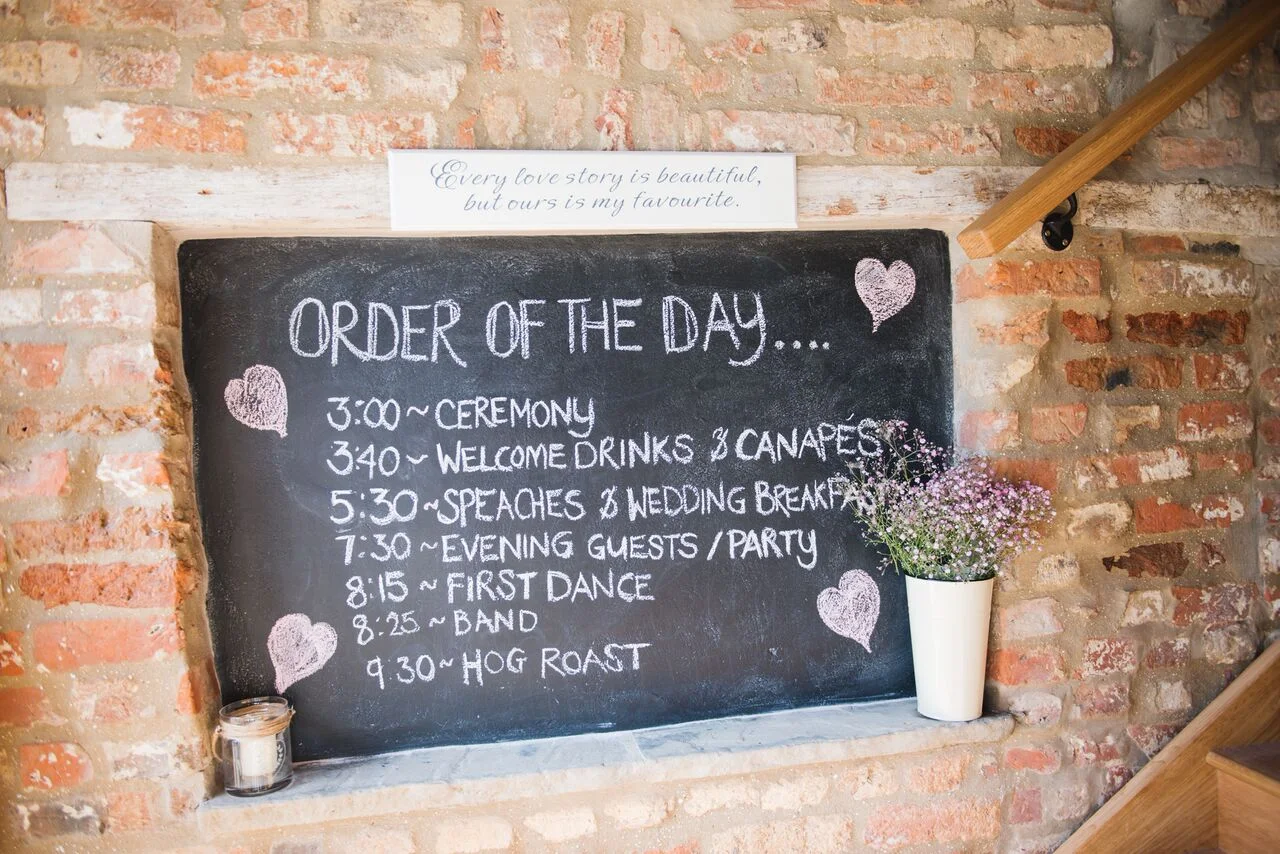 Every love story is beautiful,
but ours is my favourite.
ORDER OF THE DAY....
3:00 ~ CEREMONY
3:40 ~ WELCOME DRINKS & CANAPÉS
5:30 ~ SPEACHES & WEDDING
7:30 ~ EVENING GUESTS / PARTY
8:15 ~ FIRST DANCE
8:25 ~ BAND
9:30 ~ HOG ROAST